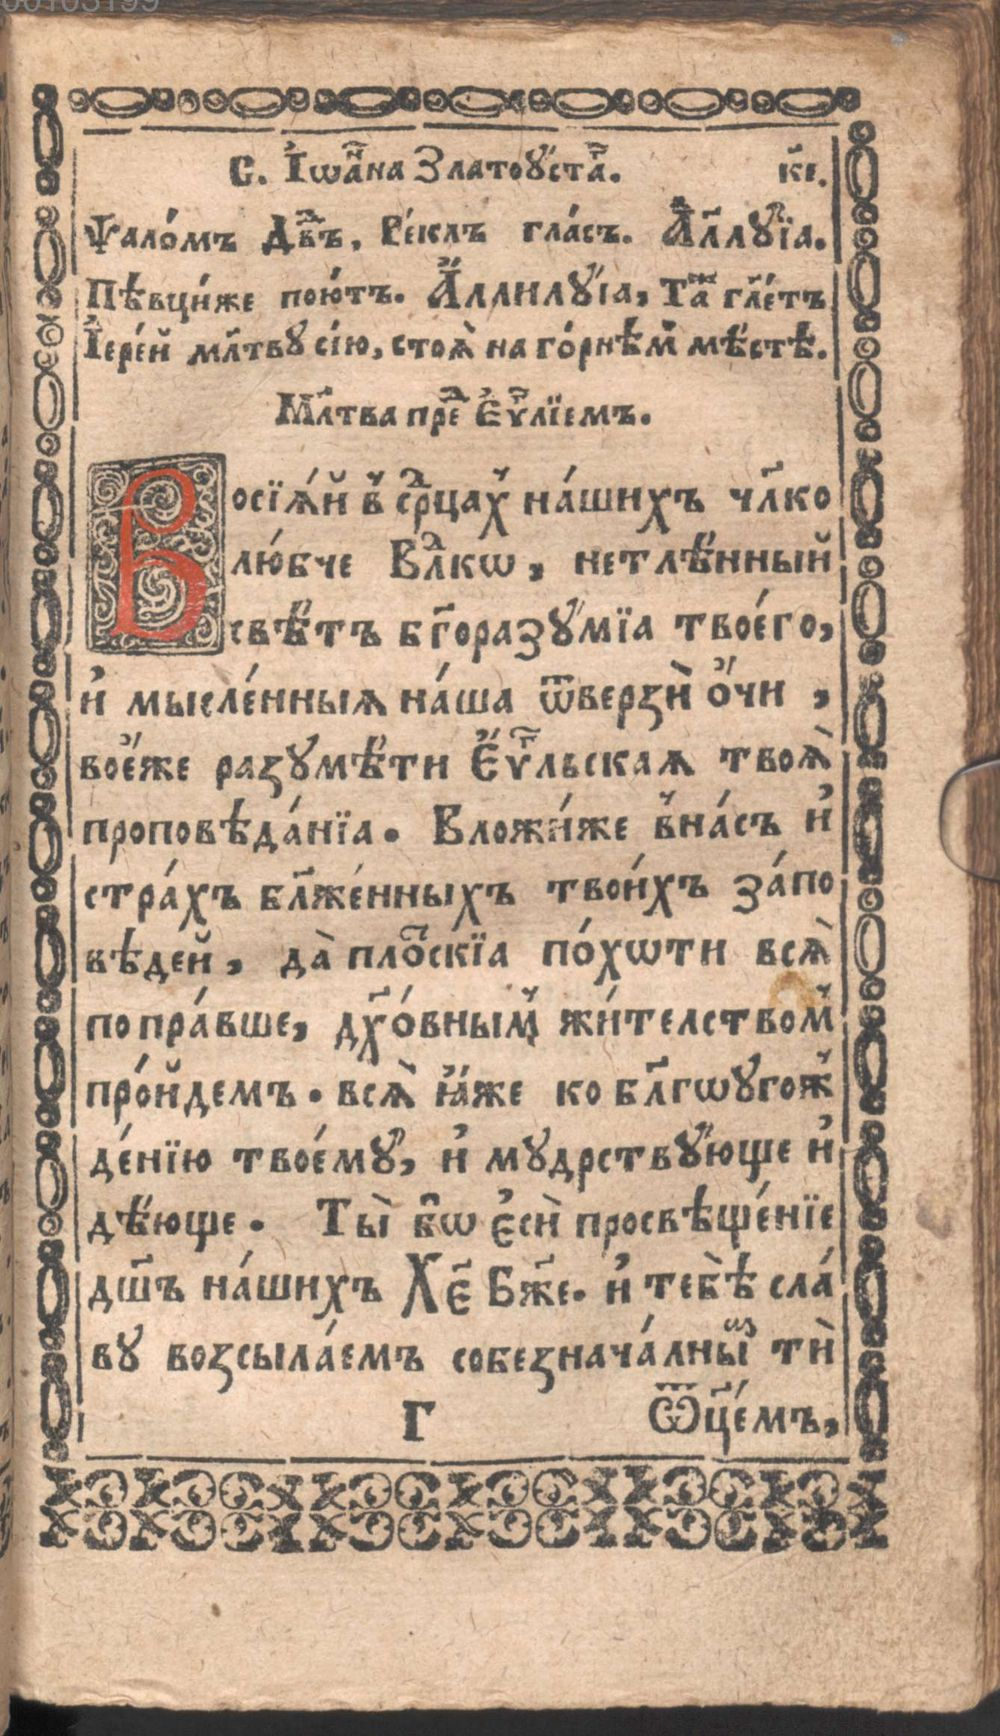 00103199
С. І҆ѡа҃на Златоꙋ́стаⷢ҇. к҃е.
Ѱало́мъ Дв҃дъ. Ре́клъ гла́съ. А҆ллꙋ́їа.
Пѣвци́же пою́тъ. А҆́ллилꙋ́їа, Та́ⷤ гл҃етъ
І҆ере́й мл҃твꙋ сі́ю, стоѧ̀ на го́рнѣⷨ мѣ́стѣ.
Мл҃тва преⷣ Є҆ѵⷢ҇лїемъ.
Восїѧ́й в̾ срⷣцаⷯ на́шихъ чл҃ко
лю́бче Влⷣкѡ, нетлѣ́нный
свѣ́тъ бг҃оразꙋ́мїа твоегѡ̀,
и҆ мысле́нныѧ на́ша ѿверзѝ ѻ҆́чи,
вое҆́же разꙋмѣ́ти Є҆ѵⷢ҇льскаѧ твоѧ̀
проповѣда́нїа. Вложи́же в̾на́съ и҆
стра́хъ бл҃же́нныхъ твои́хъ за́по
вѣдей, да̀ плоⷭ҇скїа по́хѡти всѧ̀
попра́вше, дх҃о́вныⷨ жи́телствоⷨ
про́йдемъ. всѧ̀ ꙗ҆́же ко бл҃гѡꙋгоⷤ
де́нїю твоемꙋ̀, и҆ мꙋдрствꙋ́юще и҆
дѣ́юще. Ты̀ бѡ є҆сѝ просвѣще́нїе
дш҃ъ на́шихъ Хе҃ Бж҃е. и҆ тебѣ̀ сла́
вꙋ возсыла́емъ собезнача́лныⷨ тѝ
Г Ѿц҃е́мъ,